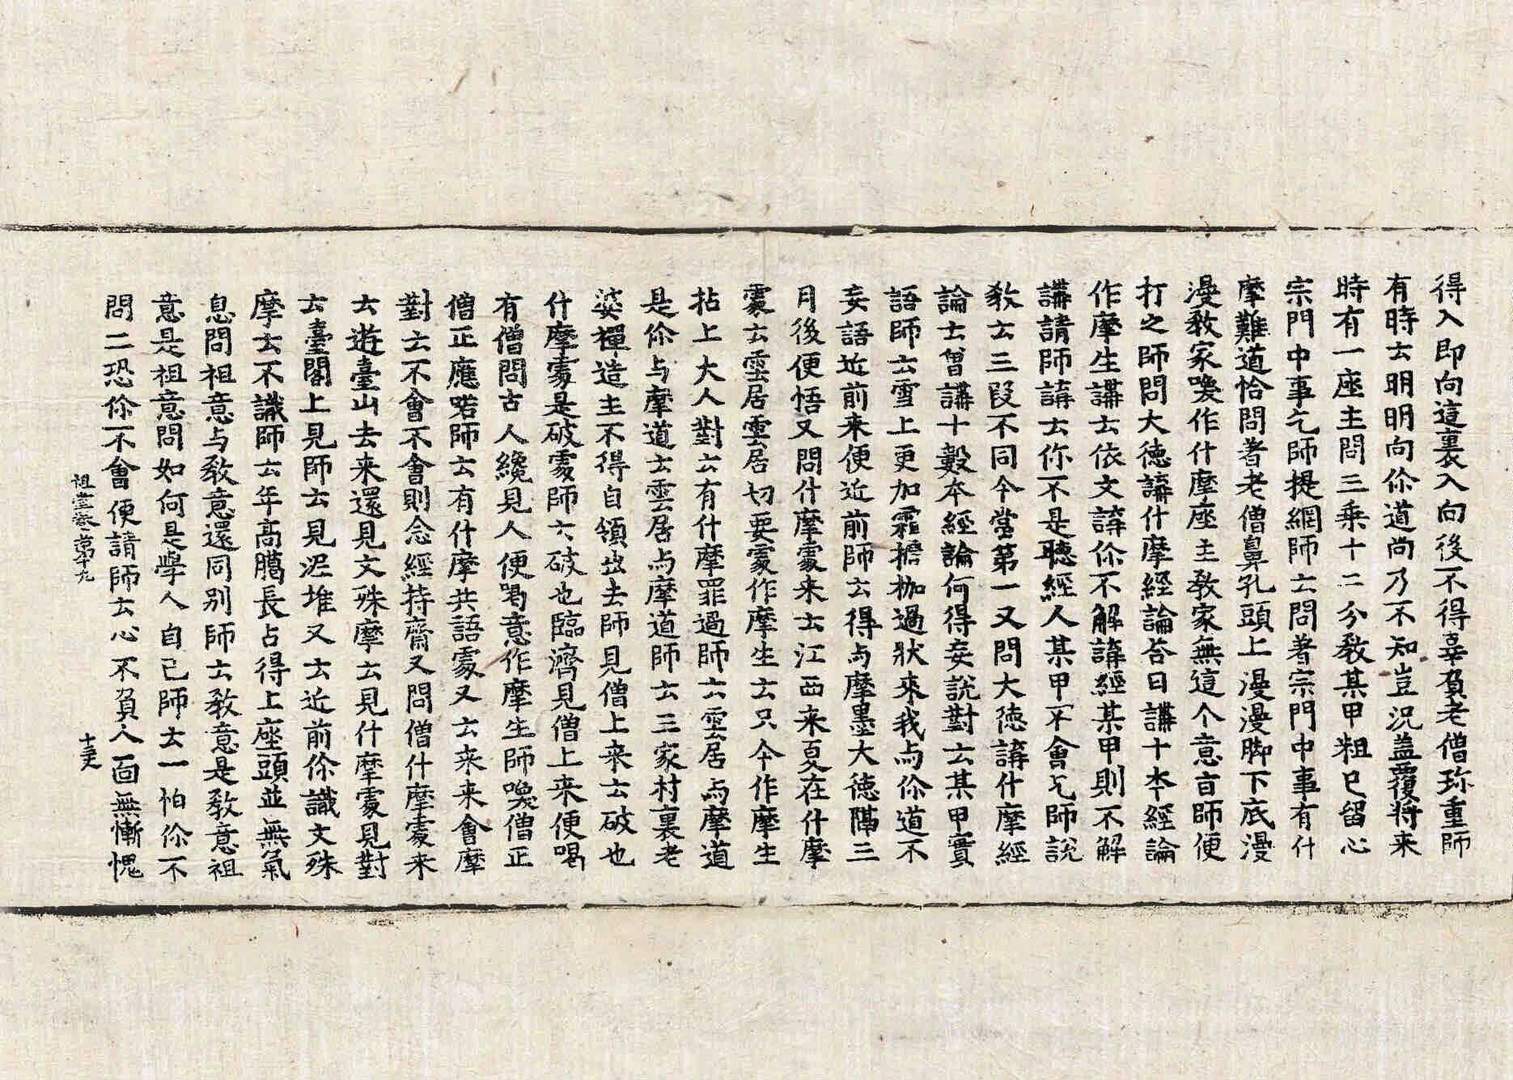 得入即向這裏入向後不得辜負老僧珎重師
有時云明明向你道尚乃不知豈況盖覆將来
時有一座主問三乗十二分教某甲粗已留心
宗門中事乞師提網師云問著宗門中事有什
摩難道恰問著老僧鼻孔頭上漫漫脚下底漫
漫教家喚作什摩座主教家無這个意旨師便
打之師問大徳講什摩經論荅曰講十本經論
作摩生講云依文講你不解講經某甲則不解
講請師講云你不是聽經人某甲不會乞師說
教云三段不同今當第一又問大徳講什摩經
論士曽講十數本經論何得妄說對云某甲實
語師云雪上更加霜擔枷過狀来我与你道不
妄語近前来便近前師云得与摩墨大徳隔三
月後便悟又問什摩䖏来云江西来夏在什摩
䖏云雲居雲居切要䖏作摩生云只今作摩生
拈上大人對云有什摩罪過師云雲居与摩道
是你与摩道云雲居与摩道師云三家村裏老
婆禪造主不得自領出去師見僧上来云破也
什摩䖏是破䖏師云破也臨濟見僧上来便喝
有僧問古人纔見人便喝意作摩生師喚僧正
僧正應喏師云有什摩共語䖏又云来来會摩
對云不會不會則念經持齋又問僧什摩䖏来
云遊臺山去来還見文殊摩云見什摩䖏見對
云臺閣上見師云見泥堆又云近前你識文殊
摩云不識師云年高臈長占得上座頭並無氣
息問祖意与教意還同別師云教意是教意祖
意是祖意問如何是學人自己師云一怕你不
問二恐你不會便請師云心不負人面無慚愧
祖堂卷苐十九
十五丈